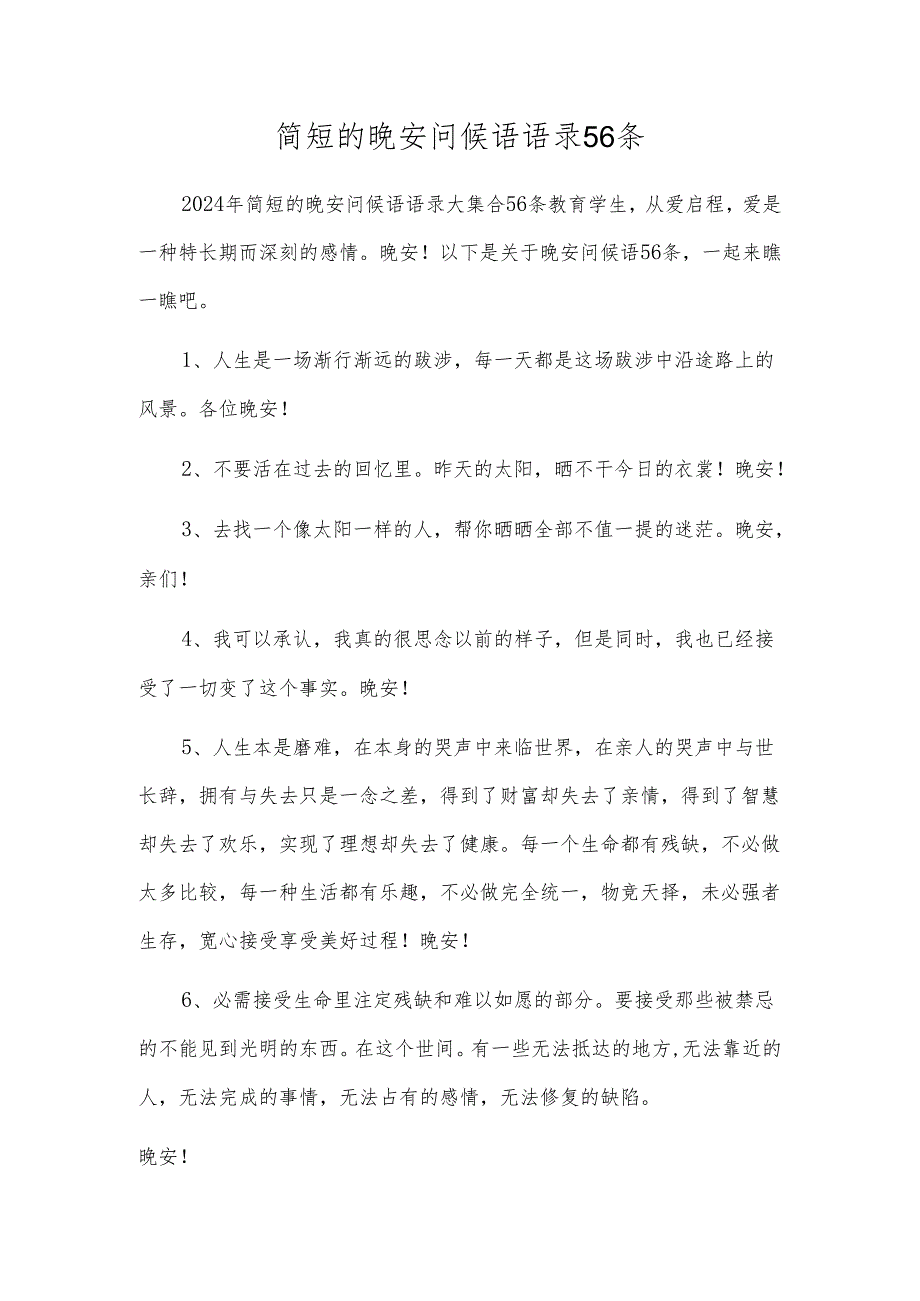 简短的晚安问候语语录56条
2024年简短的晚安问候语语录大集合56条教育学生，从爱启程，爱是
一种特长期而深刻的感情。晚安！以下是关于晚安问候语56条，一起来瞧
一瞧吧。
1、人生是一场渐行渐远的跋涉，每一天都是这场跋涉中沿途路上的
风景。各位晚安！
2、不要活在过去的回忆里。昨天的太阳，晒不干今日的衣裳！晚安！
3、去找一个像太阳一样的人，帮你晒晒全部不值一提的迷茫。晚安，
亲们！
4、我可以承认，我真的很思念以前的样子，但是同时，我也已经接
受了一切变了这个事实。晚安！
5、人生本是磨难，在本身的哭声中来临世界，在亲人的哭声中与世
长辞，拥有与失去只是一念之差，得到了财富却失去了亲情，得到了智慧
却失去了欢乐，实现了理想却失去了健康。每一个生命都有残缺，不必做
太多比较，每一种生活都有乐趣，不必做完全统一，物竞天择，未必强者
生存，宽心接受享受美好过程！晚安！
6、必需接受生命里注定残缺和难以如愿的部分。要接受那些被禁忌
的不能见到光明的东西。在这个世间。有一些无法抵达的地方,无法靠近的
人，无法完成的事情，无法占有的感情，无法修复的缺陷。
晚安！